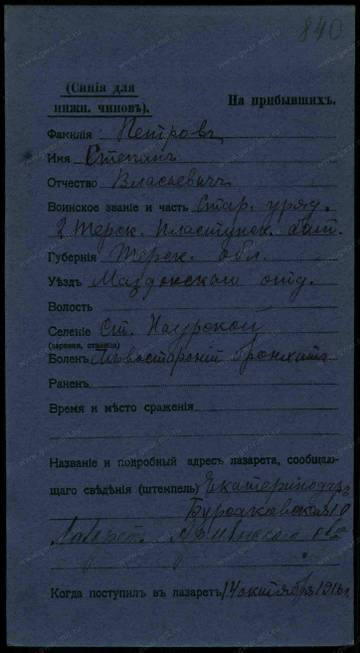 840
(Синія для
нижн. чиновъ).
На прибывшихъ.
Фамилія Петровъ
Имя Степанъ
Отчество Власьевичъ
Воинское званіе и часть Стар. уряд.
2 Терск. Пластунск. бат.
Губернія Терск. обл.
Уѣздъ Маздокскаго отд.
Волость
Селеніе Ст. Наурской
(деревня, станица)
Боленъ бронхитъ
Раненъ
Время и мѣсто сраженія
Названіе и подробный адресъ лазарета, сообщаю-
щаго свѣдѣнія (штемпель) Екатеринодаръ
Бурсаковская
Лазарет.
Когда поступилъ въ лазаретъ 14 октября 1916 г.